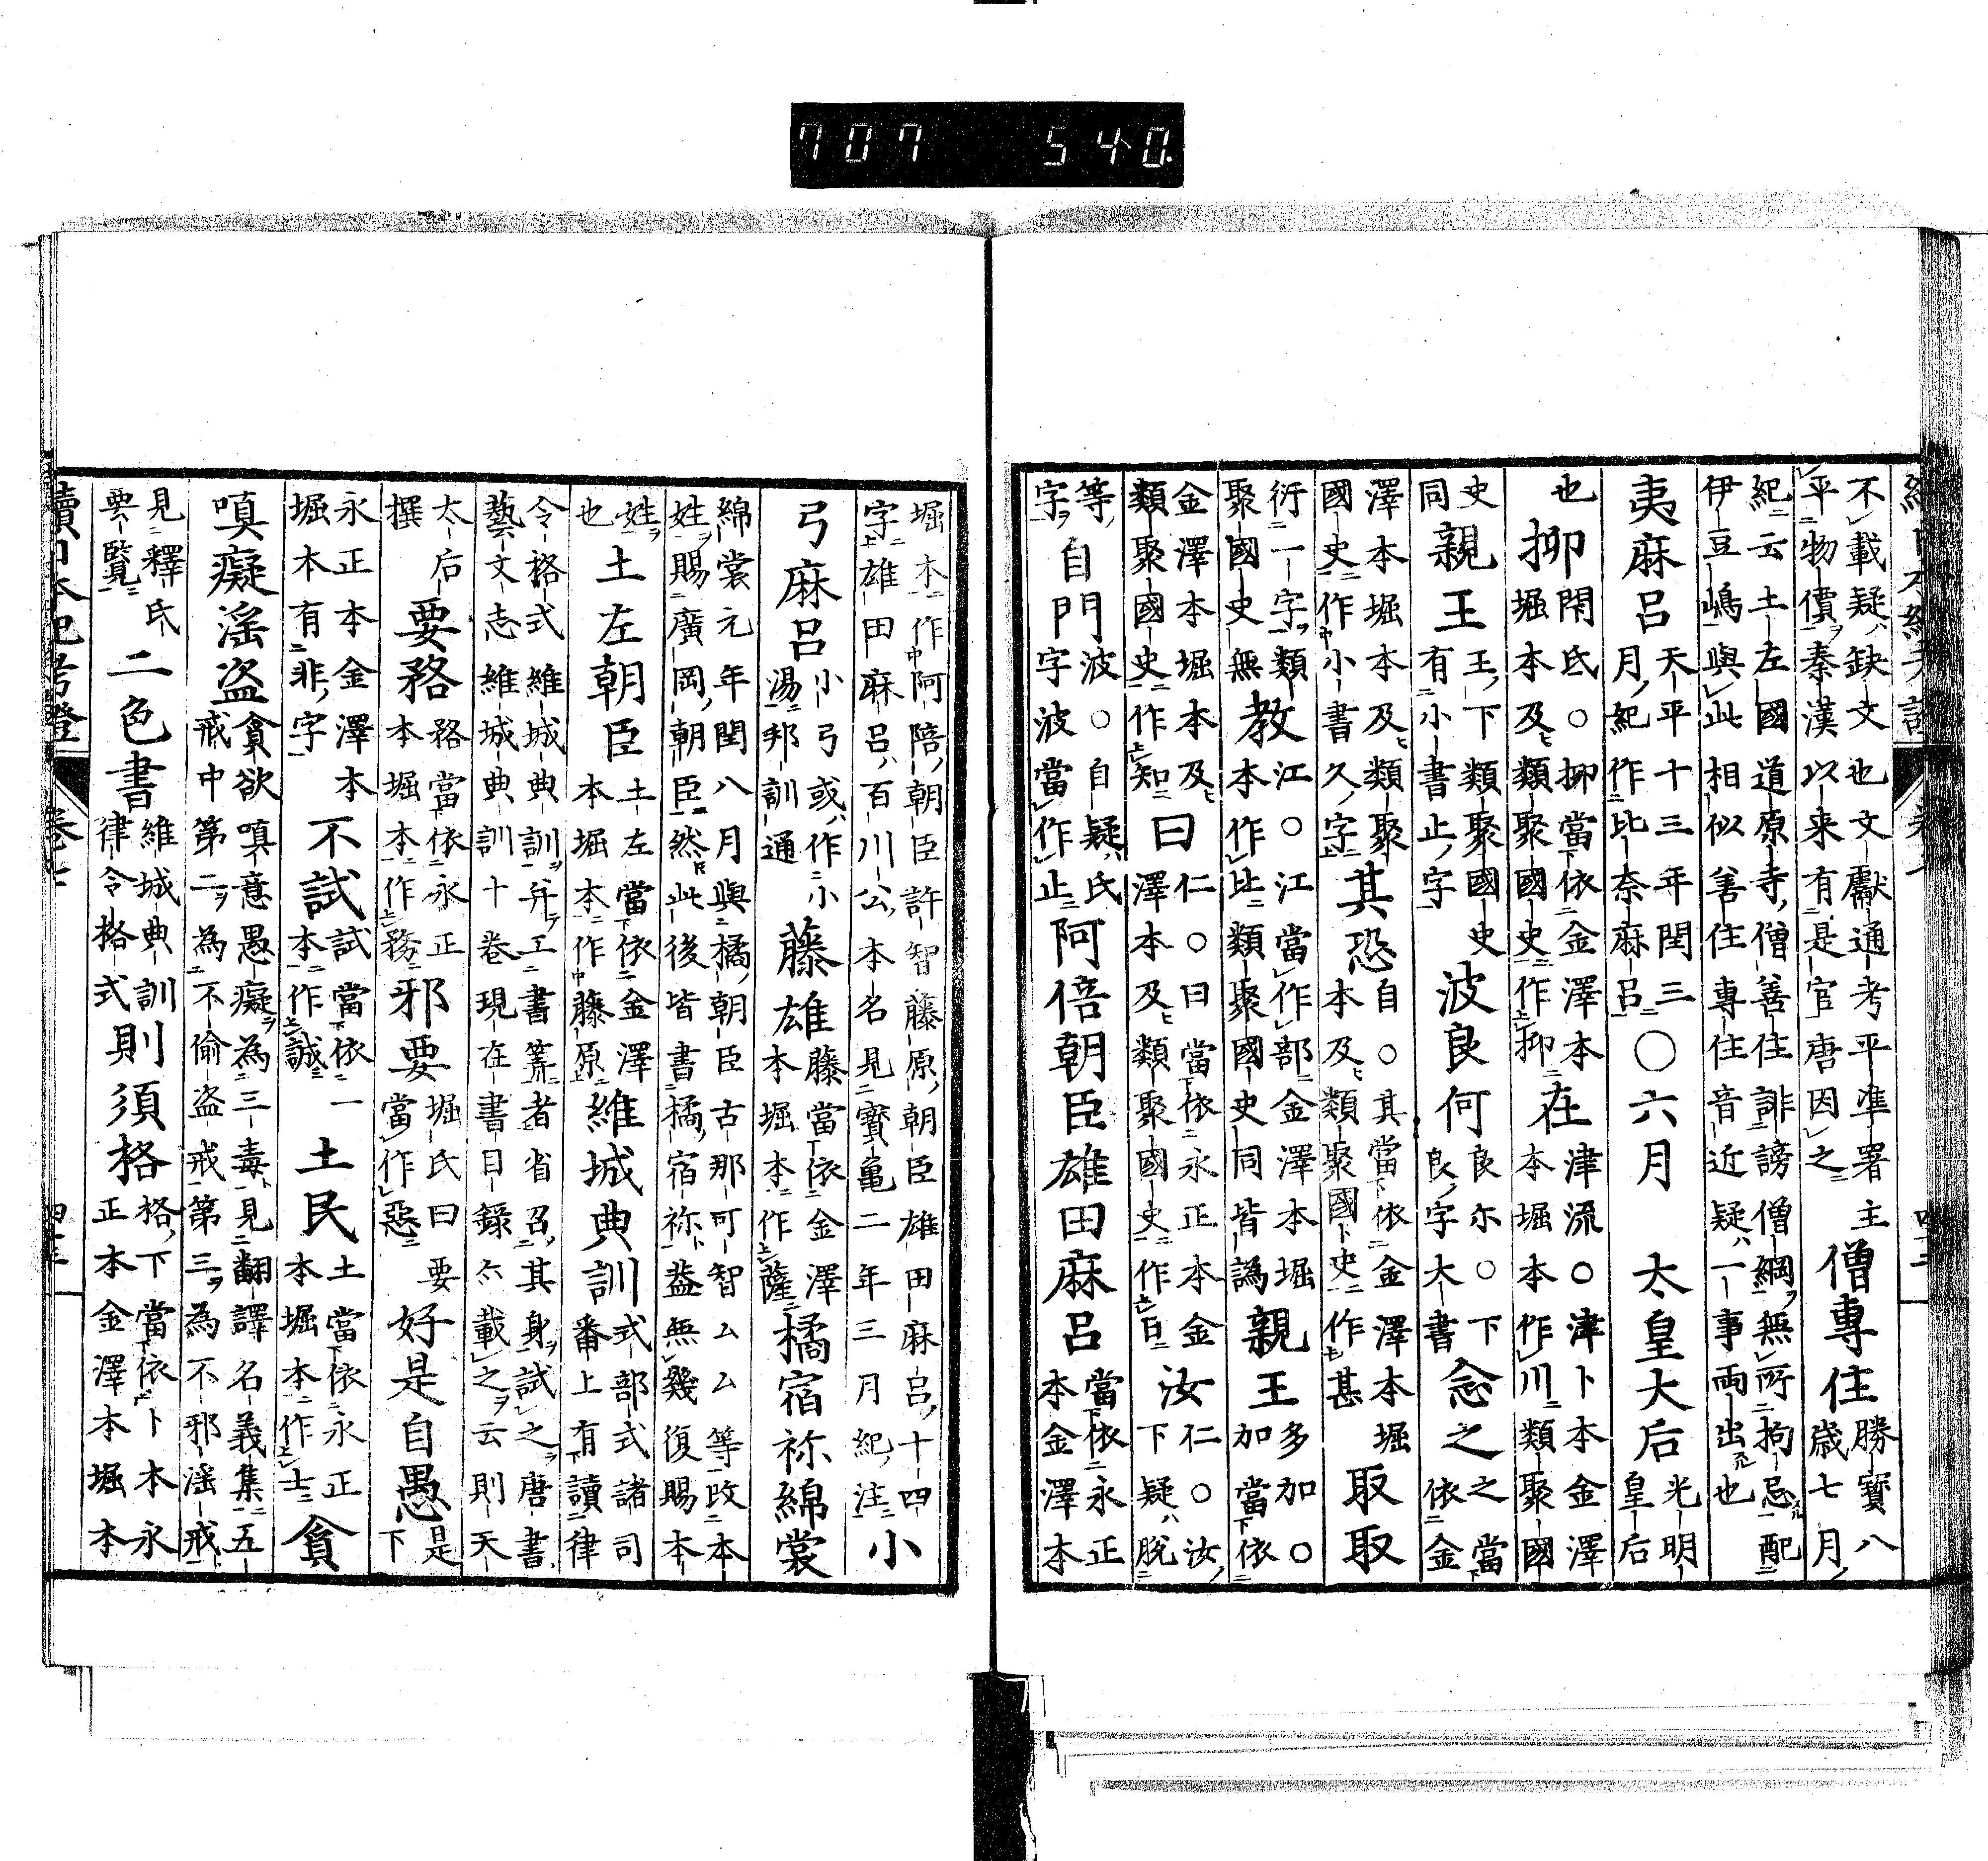 707 540
不載疑缺文也文獻通考平準署主
平物價秦漢以来有是官唐因之
僧專住
勝寶八
歳七月
紀云土左國道原寺僧善住誹謗僧綱無所拘忌配
伊豆嶋與此相似善住專住音近疑一事兩出也
夷麻呂
天平十三年閏三
月紀作比奈麻呂
〇六月
太皇大后
光明
皇后
也
抑
閇氏〇抑當依金澤本
堀本及類聚國史作抑
在
津流〇津卜本金澤
本堀本作川類聚國
史
同
親王
王下類聚國史
有小書止字
波良何
良尓〇下
良字大書
念之
之當
依金
澤本堀本及類聚
國史作小書久字
其恐
自〇其當依金澤本堀
本及類聚國史作甚
取取
衍一字類
聚國史無
教
江〇江當作部金澤本堀
本作比類聚國史同皆譌
親王
多加〇
加當依
金澤本堀本及
類聚國史作知
曰
仁〇曰當依永正本金
澤本及類聚國史作白
汝
仁〇汝
下疑脫
等
字
自門
波〇自疑氏
字波當作止
阿倍朝臣雄田麻呂
當依永正
本金澤本
堀本作阿陪朝臣許智藤原朝臣雄田麻呂十四
字雄田麻呂百川公本名見寶龜二年三月紀注
小
弓麻呂
小弓或作小
湯邦訓通
藤雄
藤當依金澤
本堀本作薩
橘宿祢綿裳
綿裳元年閏八月與橘朝臣古那可智厶厶等改本
姓賜廣岡朝臣然此後皆書橘宿祢葢無幾復賜本
姓
也
土左朝臣
土左當依金澤
本堀本作藤原
維城典訓
式部式諸司
番上有讀律
令格式維城典訓并工書筭者省召其身試之唐書
藝文志維城典訓十卷現在書目錄亦載之云則天
太后
撰
要務
務當依永正
本堀本作務
邪要
堀氏曰要
當作惡
好是自愚
是
下
永正本金澤本
堀本有非字
不試
試當依一
本作誠
土民
土當依永正
本堀本作士
貪
嗔癡滛盜
貪欲嗔恚愚癡為三毒見翻譯名義集五
戒中第二為不偷盗戒第三為不邪滛戒
見釋氏
要覽
二色書
維城典訓
律令格式
則須格
格下當依卜本永
正本金澤本堀本
續日本紀考證
卷七